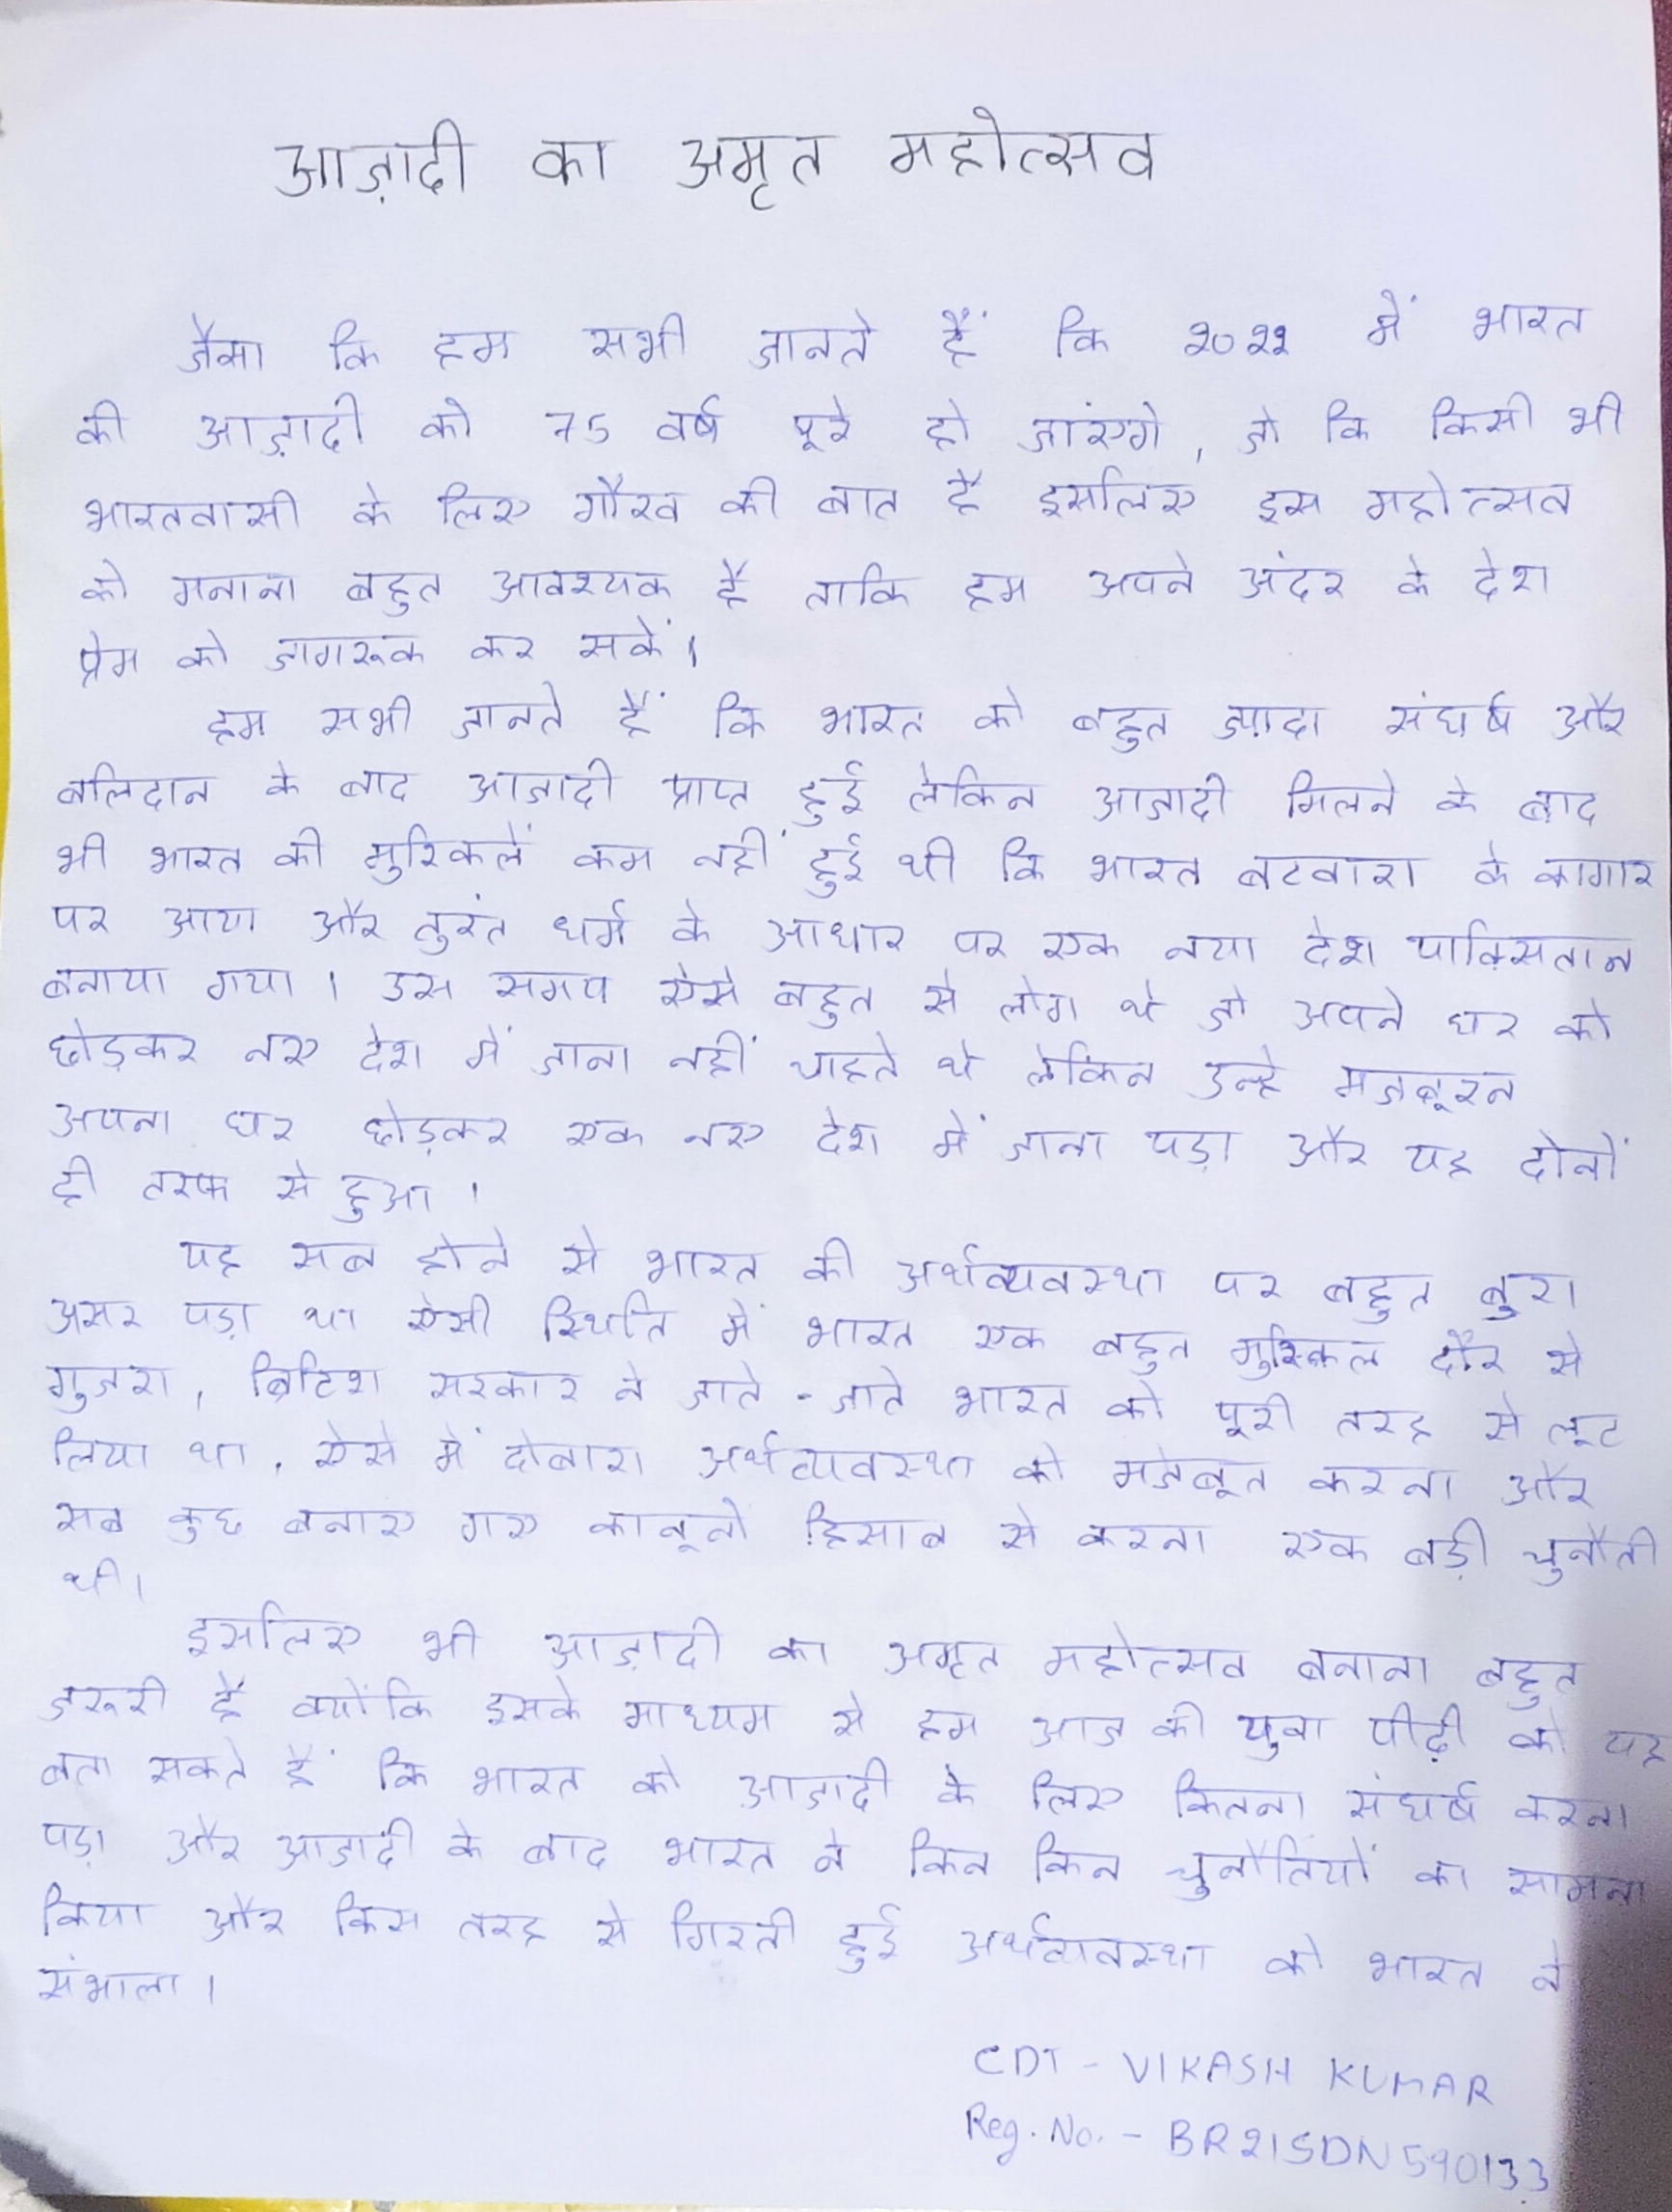 आज़ादी का अमृत महोत्सव
जैसा कि हम सभी जानते हैं कि 2022 में भारत
की आज़ादी को 75 वर्ष पूरे हो जाएंगे, जो कि किसी भी
भारतवासी के लिए गौरव की बात है इसलिए इस महोत्सव
को मनाना बहुत आवश्यक है ताकि हम अपने अंदर के देश
प्रेम को जागरूक कर सकें।
हम सभी जानते हैं कि भारत को बहुत ज्यादा संघर्ष और
बलिदान के बाद आजादी प्राप्त हुई लेकिन आजादी मिलने के बाद
भी भारत की मुश्किलें कम नहीं हुई थी कि भारत बटवारा के कागार
पर आया और तुरंत धर्म के आधार पर एक नया देश पाकिस्तान
बनाया गया। उस समय ऐसे बहुत से लोग थे जो अपने घर को
छोड़कर नए देश में जाना नहीं चाहते थे लेकिन उन्हे मजबूरन
अपना घर छोड़कर एक नए देश में जाना पड़ा और यह दोनों
ही तरफ से हुआ।
यह सब होने से भारत की अर्थव्यवस्था पर बहुत बुरा
असर पड़ा था ऐसी स्थिति में भारत एक बहुत मुश्किल दौर से
गुजरा, ब्रिटिश सरकार ने जाते-जाते भारत को पूरी तरह से लूट
लिया था, ऐसे में दोबारा अर्थव्यवस्था को मजबूत करना और
सब कुछ बनाए गए कानूनो हिसाब से करना एक बड़ी चुनौती
थी।
इसलिए भी आज़ादी का अमृत महोत्सव बनाना बहुत
जरूरी है क्योंकि इसके माध्यम से हम आज की युवा पीढ़ी को यह
बता सकते हैं कि भारत को आजादी के लिए कितना संघर्ष करना
पड़ा और आजादी के बाद भारत ने किन किन चुनौतियों का सामना
किया और किस तरह से गिरती हुई अर्थव्यवस्था को भारत ने
संभाला।
CDT - VIKASH KUMAR
Reg. No. - BR21SDN590133